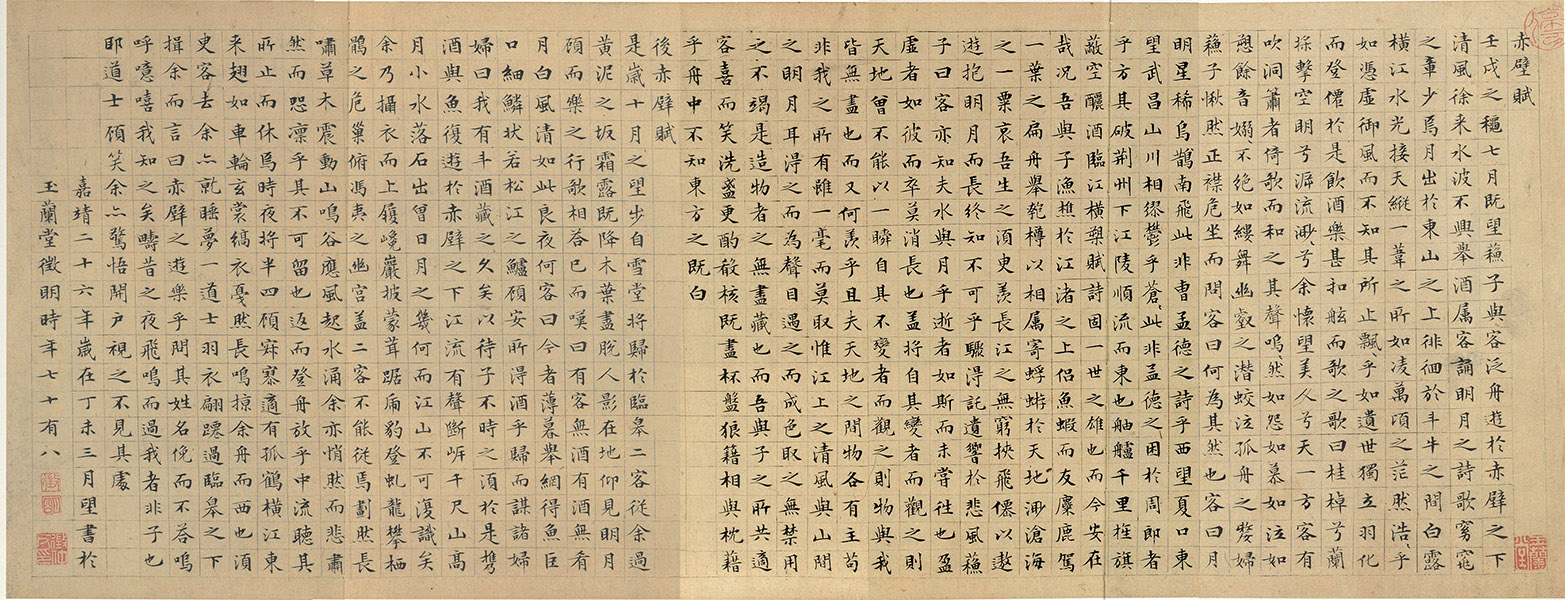 赤壁賦
壬戌之穐七月既望蘓子與客泛舟遊於赤壁之下
清風徐来水波不興舉酒属客誦明月之詩歌窈窕
之章少焉月出於東山之上徘徊於斗牛之間白露
橫江水光接天縱一葦之所如凌萬頃之茫然浩〻乎
如憑虛御風而不知其所止飄〻乎如遺世獨立羽化
而登僊於是飲酒樂甚扣舷而歌之歌曰桂棹兮蘭
槳擊空明兮泝流渺〻兮余懷望美人兮天一方客有
吹洞簫者倚歌而和之其聲嗚〻然如怨如慕如泣如
愬餘音嫋〻不絕如縷舞幽壑之潛蛟泣孤舟之嫠婦
蘓子愀然正襟危坐而問客曰何為其然也客曰月
明星稀烏鵲南飛此非曹孟德之詩乎西望夏口東
望武昌山川相繆鬱乎蒼〻此非孟德之困於周郎者
乎方其破荆州下江陵順流而東也舳艫千里旌旗
蔽空釃酒臨江橫槊賦詩固一世之雄也而今安在
哉况吾與子漁樵於江渚之上侶魚蝦而友麋鹿駕
一葉之扁舟舉匏樽以相属寄蜉蝣於天地渺滄海
之一粟哀吾生之須臾羨長江之無窮挾飛僊以遨
遊抱明月而長終知不可乎驟得託遺響於悲風蘓
子曰客亦知夫水與月乎逝者如斯而未嘗往也盈
虛者如彼而卒莫消長也盖將自其變者而觀之則
天地曾不能以一瞬自其不變者而觀之則物與我
皆無盡也而又何羨乎且夫天地之間物各有主苟
非我之所有雖一毫而莫取惟江上之清風與山間
之明月耳得之而為聲目遇之而成色取之無禁用
之不竭是造物者之無盡藏也而吾與子之所共適
客喜而笑洗盞更酌殽核既盡杯盤狼籍相與枕藉
乎舟中不知東方之既白
後赤壁賦
是歲十月之望步自雪堂將歸於臨皋二客從余過
黃泥之坂霜露既降木葉盡脫人影在地仰見明月
顧而樂之行歌相答已而嘆曰有客無酒有酒無肴
月白風清如此良夜何客曰今者薄暮舉網得魚巨
口細鱗狀若松江之鱸顧安所得酒乎歸而謀諸婦
婦曰我有斗酒藏之久矣以待子不時之須於是攜
酒與魚復遊於赤壁之下江流有聲斷岸千尺山高
月小水落石出曾日月之幾何而江山不可復識矣
余乃攝衣而上履巉巖披蒙茸踞虎豹登虬龍攀栖
鶻之危巢俯馮夷之幽宮盖二客不能從焉劃然長
嘯草木震動山鳴谷應風起水涌余亦悄然而悲肅
然而恐凜乎其不可留也返而登舟放乎中流聽其
所止而休焉時夜將半四顧寂寥適有孤鶴橫江東
来翅如車輪玄裳縞衣戛然長鳴掠余舟而西也須
臾客去余亦就睡夢一道士羽衣翩躚過臨皋之下
揖余而言曰赤壁之遊樂乎問其姓名俛而不答嗚
呼噫嘻我知之矣疇昔之夜飛鳴而過我者非子也
耶道士顧笑余亦驚悟開戶視之不見其處
嘉靖二十六年歲在丁未三月望書於
玉蘭堂徵明時年七十有八